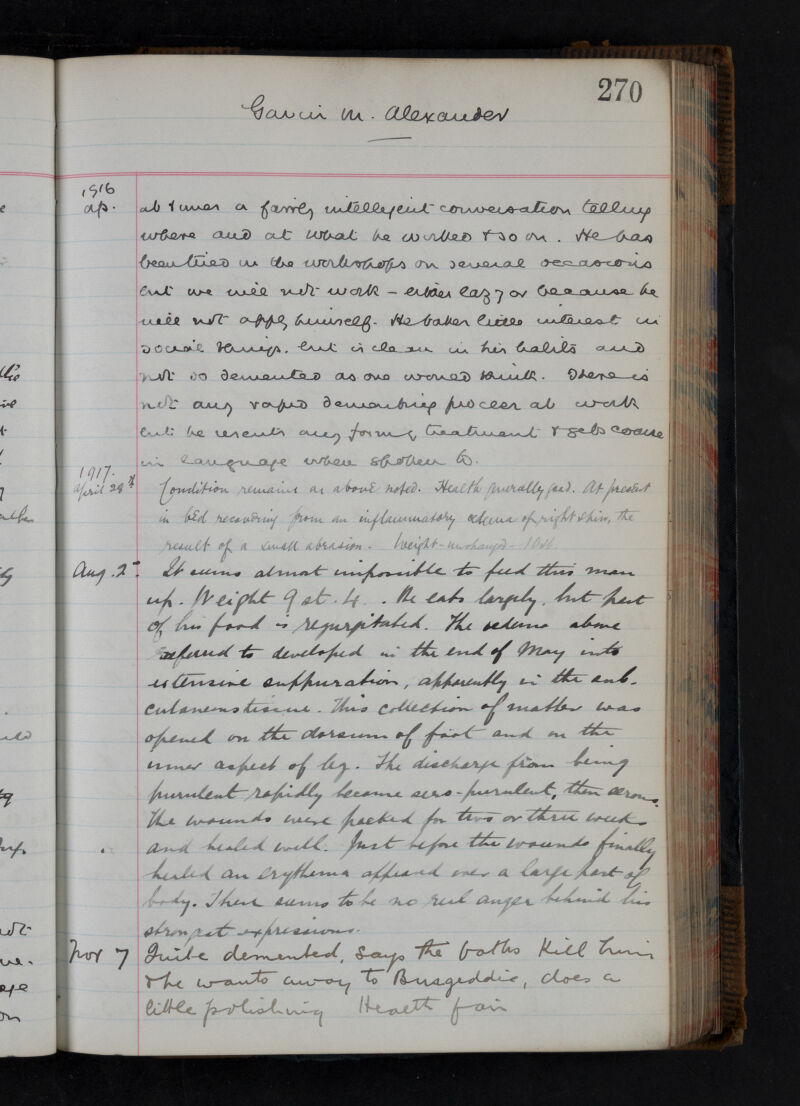 270
Gavin M. Alexander
1916
ap. at times a fairly intelligent conversation telling
where and at what he worked & so on. He has
been tried in the workshops on several occasions
but we will not work - either lazy or because he
will not apply himself. He takes little interest in
social things. but is clean in his habits and
not so demented as one would think. There is
not any rapid dementing process at work
but he resents any form of treatment & gets coarse
in language when spoken to.
1917.
April 28th Condition remains as above noted. Health generally good. At present
in bed recovering from an inflammatory oedema of right shin, the
result of a small abrasion. Weight - unchanged - 10st.
Aug. 2. It seems almost impossible to feed this man
up. Weight 9 st. 4. He eats largely, but part
of his food is regurgitated. The oedema above
referred to developed in the end of May into
extensive suppuration, apparently in the sub-
cutaneous tissue. This collection of matter was
opened on the dorsum of foot and on the
inner aspect of leg. The discharge from being
purulent rapidly became sero-purulent, then serous.
The wounds were packed for two or three weeks
and healed well. Just before the wounds finally
healed an erythema appeared over a large part of
body. There seems to be no real anger behind his
strongest expressions.
Nov 7 Quite demented, says the baths kill him
& he wants away to Busgeddie, does a
little polishing Health fair